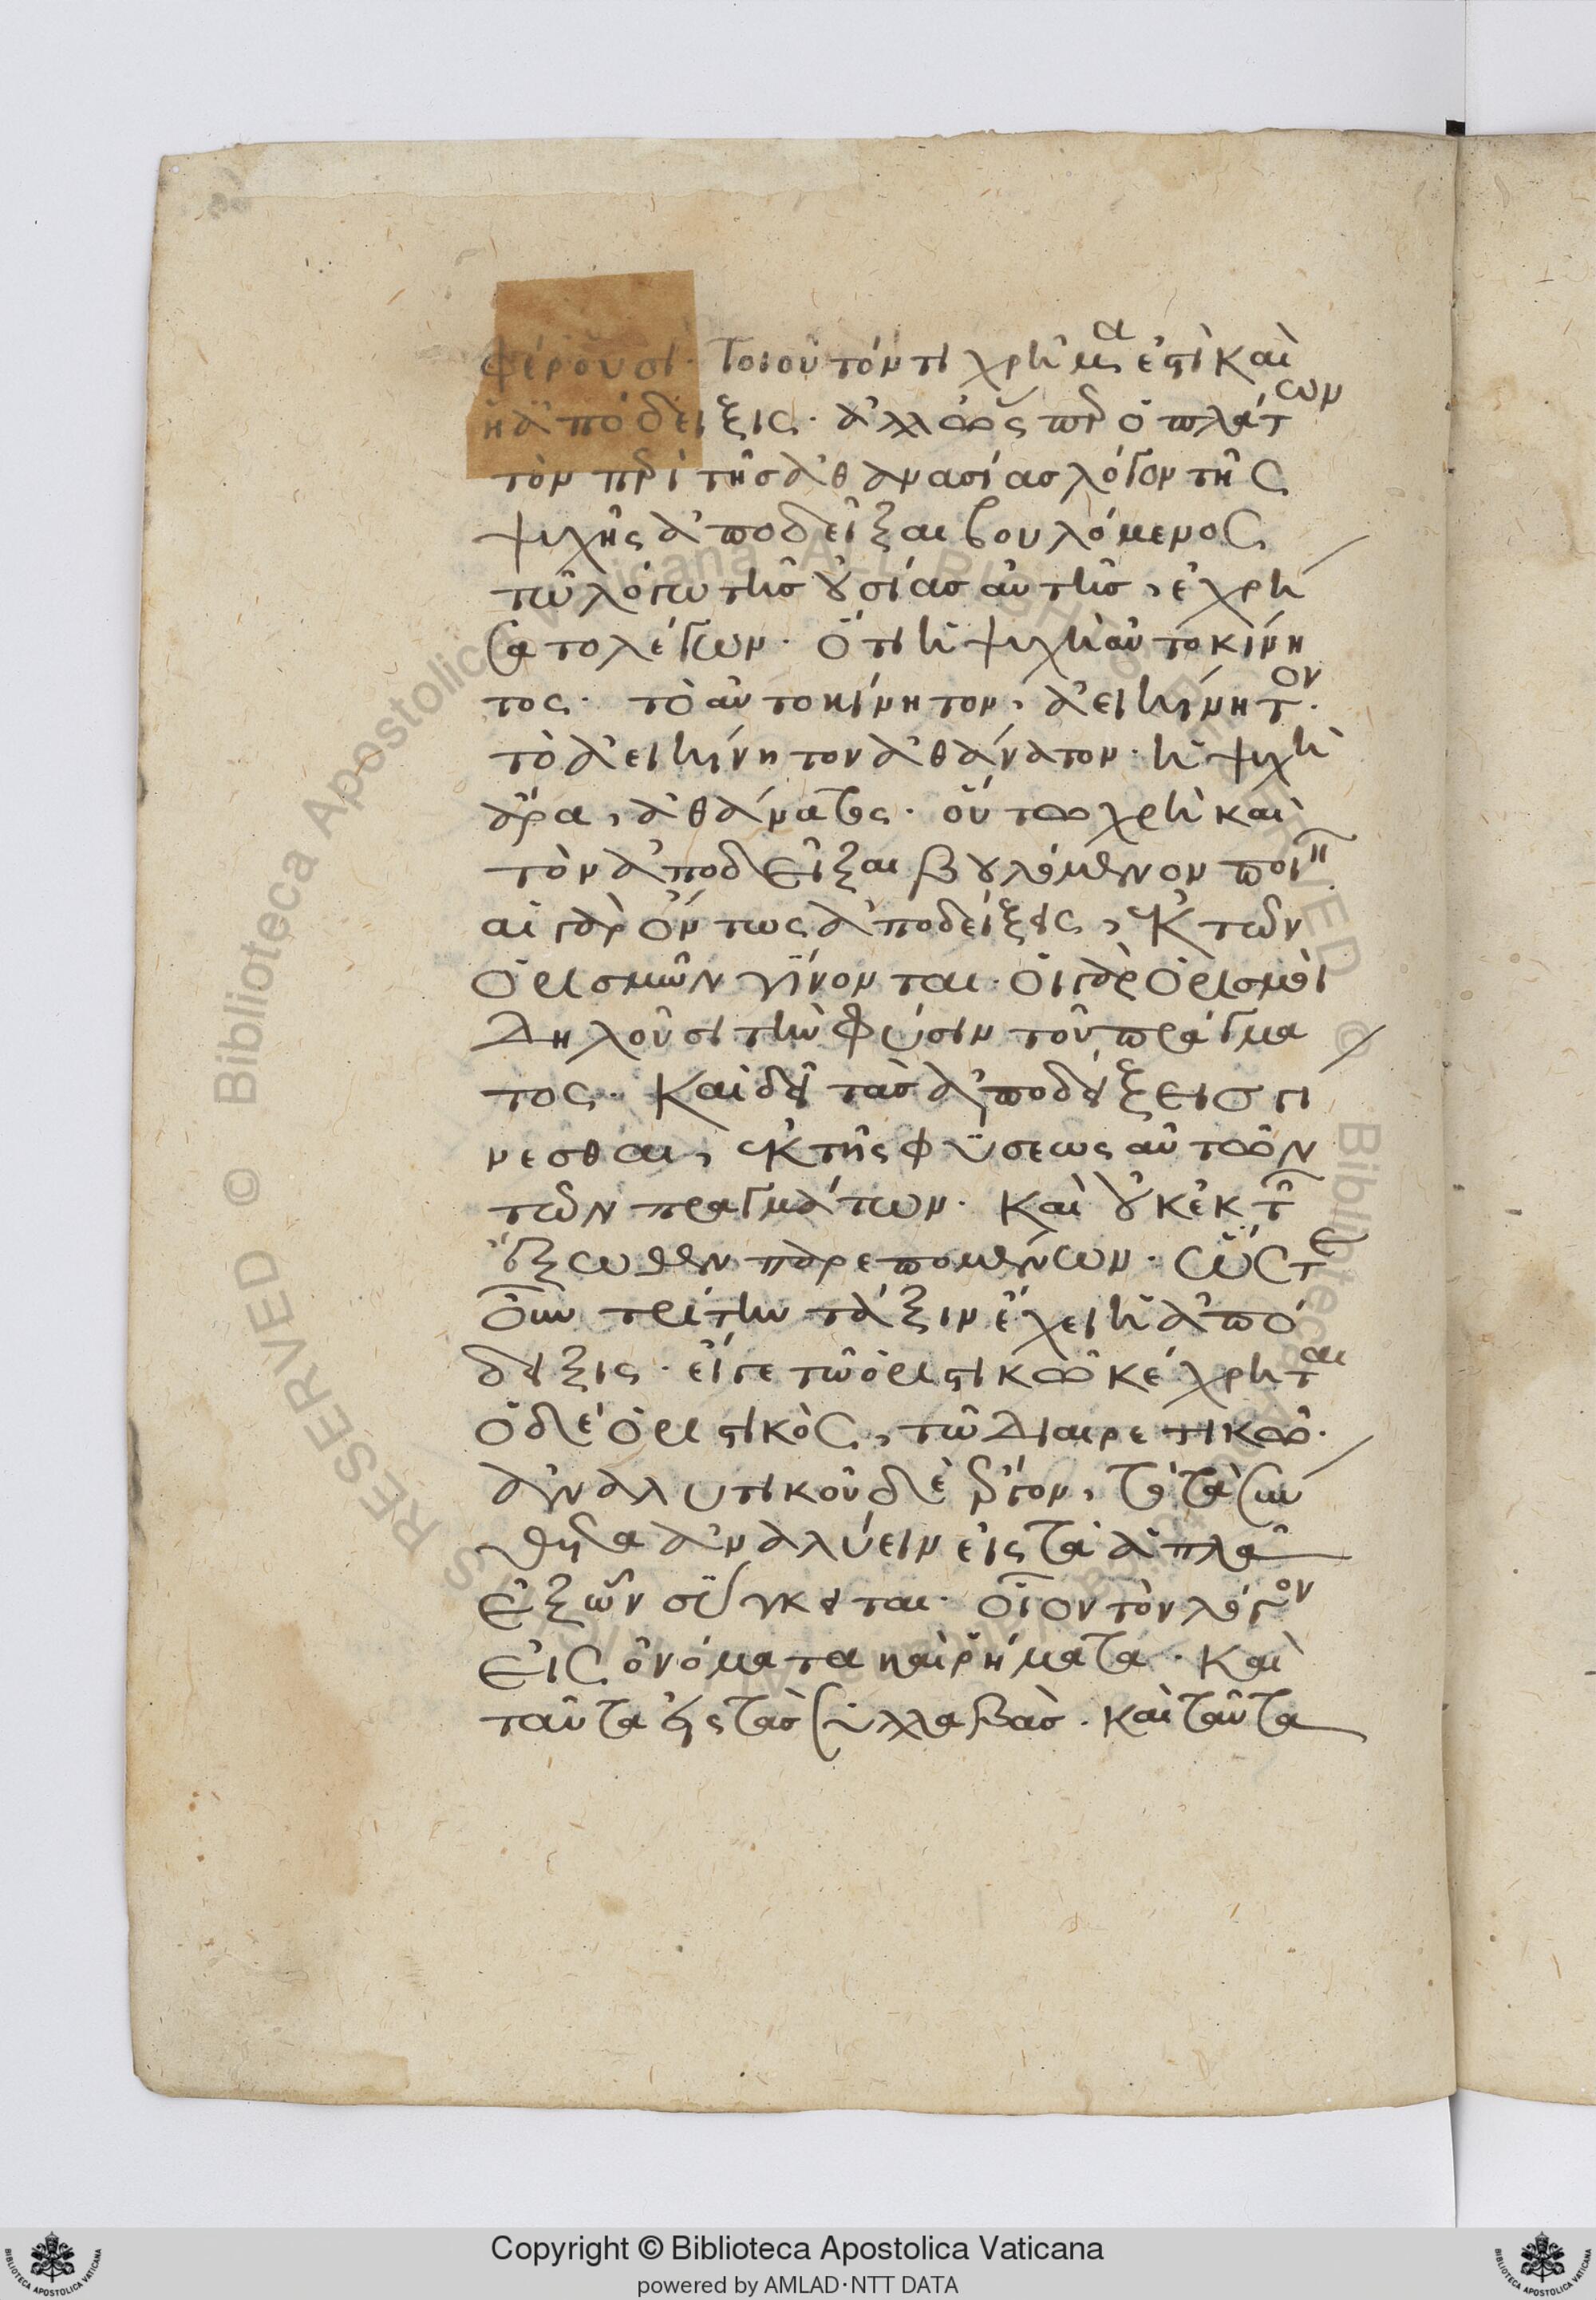 φέρουσι· τοιοῦτόν τι χρῆμα ἐστὶ καὶ
ἡ ἀπόδειξις· ἀλλ' ὥσπερ ὁ πλάτων
τὸν περὶ τῆς ἀθανασίας λόγον τῆς
ψυχῆς ἀποδεῖξαι βουλόμενος
τῶ λόγω τῆς οὐσίας αὐτῆς, ἐχρή
σατο λέγων· ὅτι ἡ ψυχὴ αὐτοκίνη
τος· τὸ αὐτοκίνητον, ἀεικίνητον·
τὸ ἀεικίνητον ἀθάνατον· ἡ ψυχὴ
ἄρα, ἀθάνατος· οὕτω χρὴ καὶ
τὸν ἀποδεῖξαι βουλόμενον ποιεῖν·
αἱ γὰρ ὄντως ἀποδείξεις, ἐκ τῶν
ὁρισμῶν γίνονται· οἱ γὰρ ὁρισμοὶ
δηλοῦσι τὴν φύσιν τοῦ πράγμα
τος· καὶ δεῖ τὰς ἀποδείξεις γί
νεσθαι, ἐκ τῆς φύσεως αὐτῶν
τῶν πραγμάτων· καὶ οὐκ ἐκ τῶν
ἔξωθεν παρεπομένων· ὥστε
οὖν τρίτην τάξιν ἔχει ἡ ἀπό
δειξις· εἴγε τῶ ὁριστικῶ κέχρηται
ὁ δὲ ὁριστικὸς, τῶ διαιρετικῶ·
ἀναλυτικοῦ δὲ ἔργον, τὸ τὰ σύν
θετα ἀναλύειν εἰς τὰ ἁπλᾶ
ἐξ ὧν σύγκειται· οἷον τὸν λόγον
εἰς ὀνόματα καὶ ῥήματα· καὶ
ταῦτα εἰς τὰς συλλαβὰς· καὶ ταῦτα
Copyright © Biblioteca Apostolica Vaticana
powered by AMLAD·NTT DATA